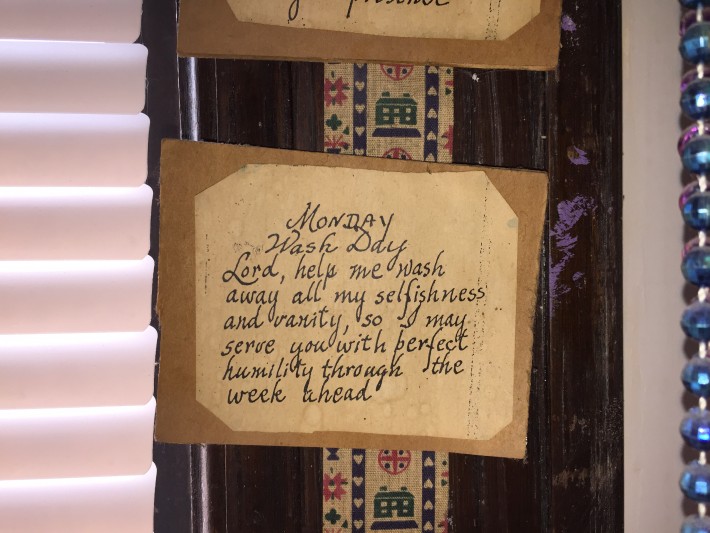 presence
MONDAY
Wash Day
Lord, help me wash
away all my selfishness
and vanity, so I may
serve you with perfect
humility through the
week ahead